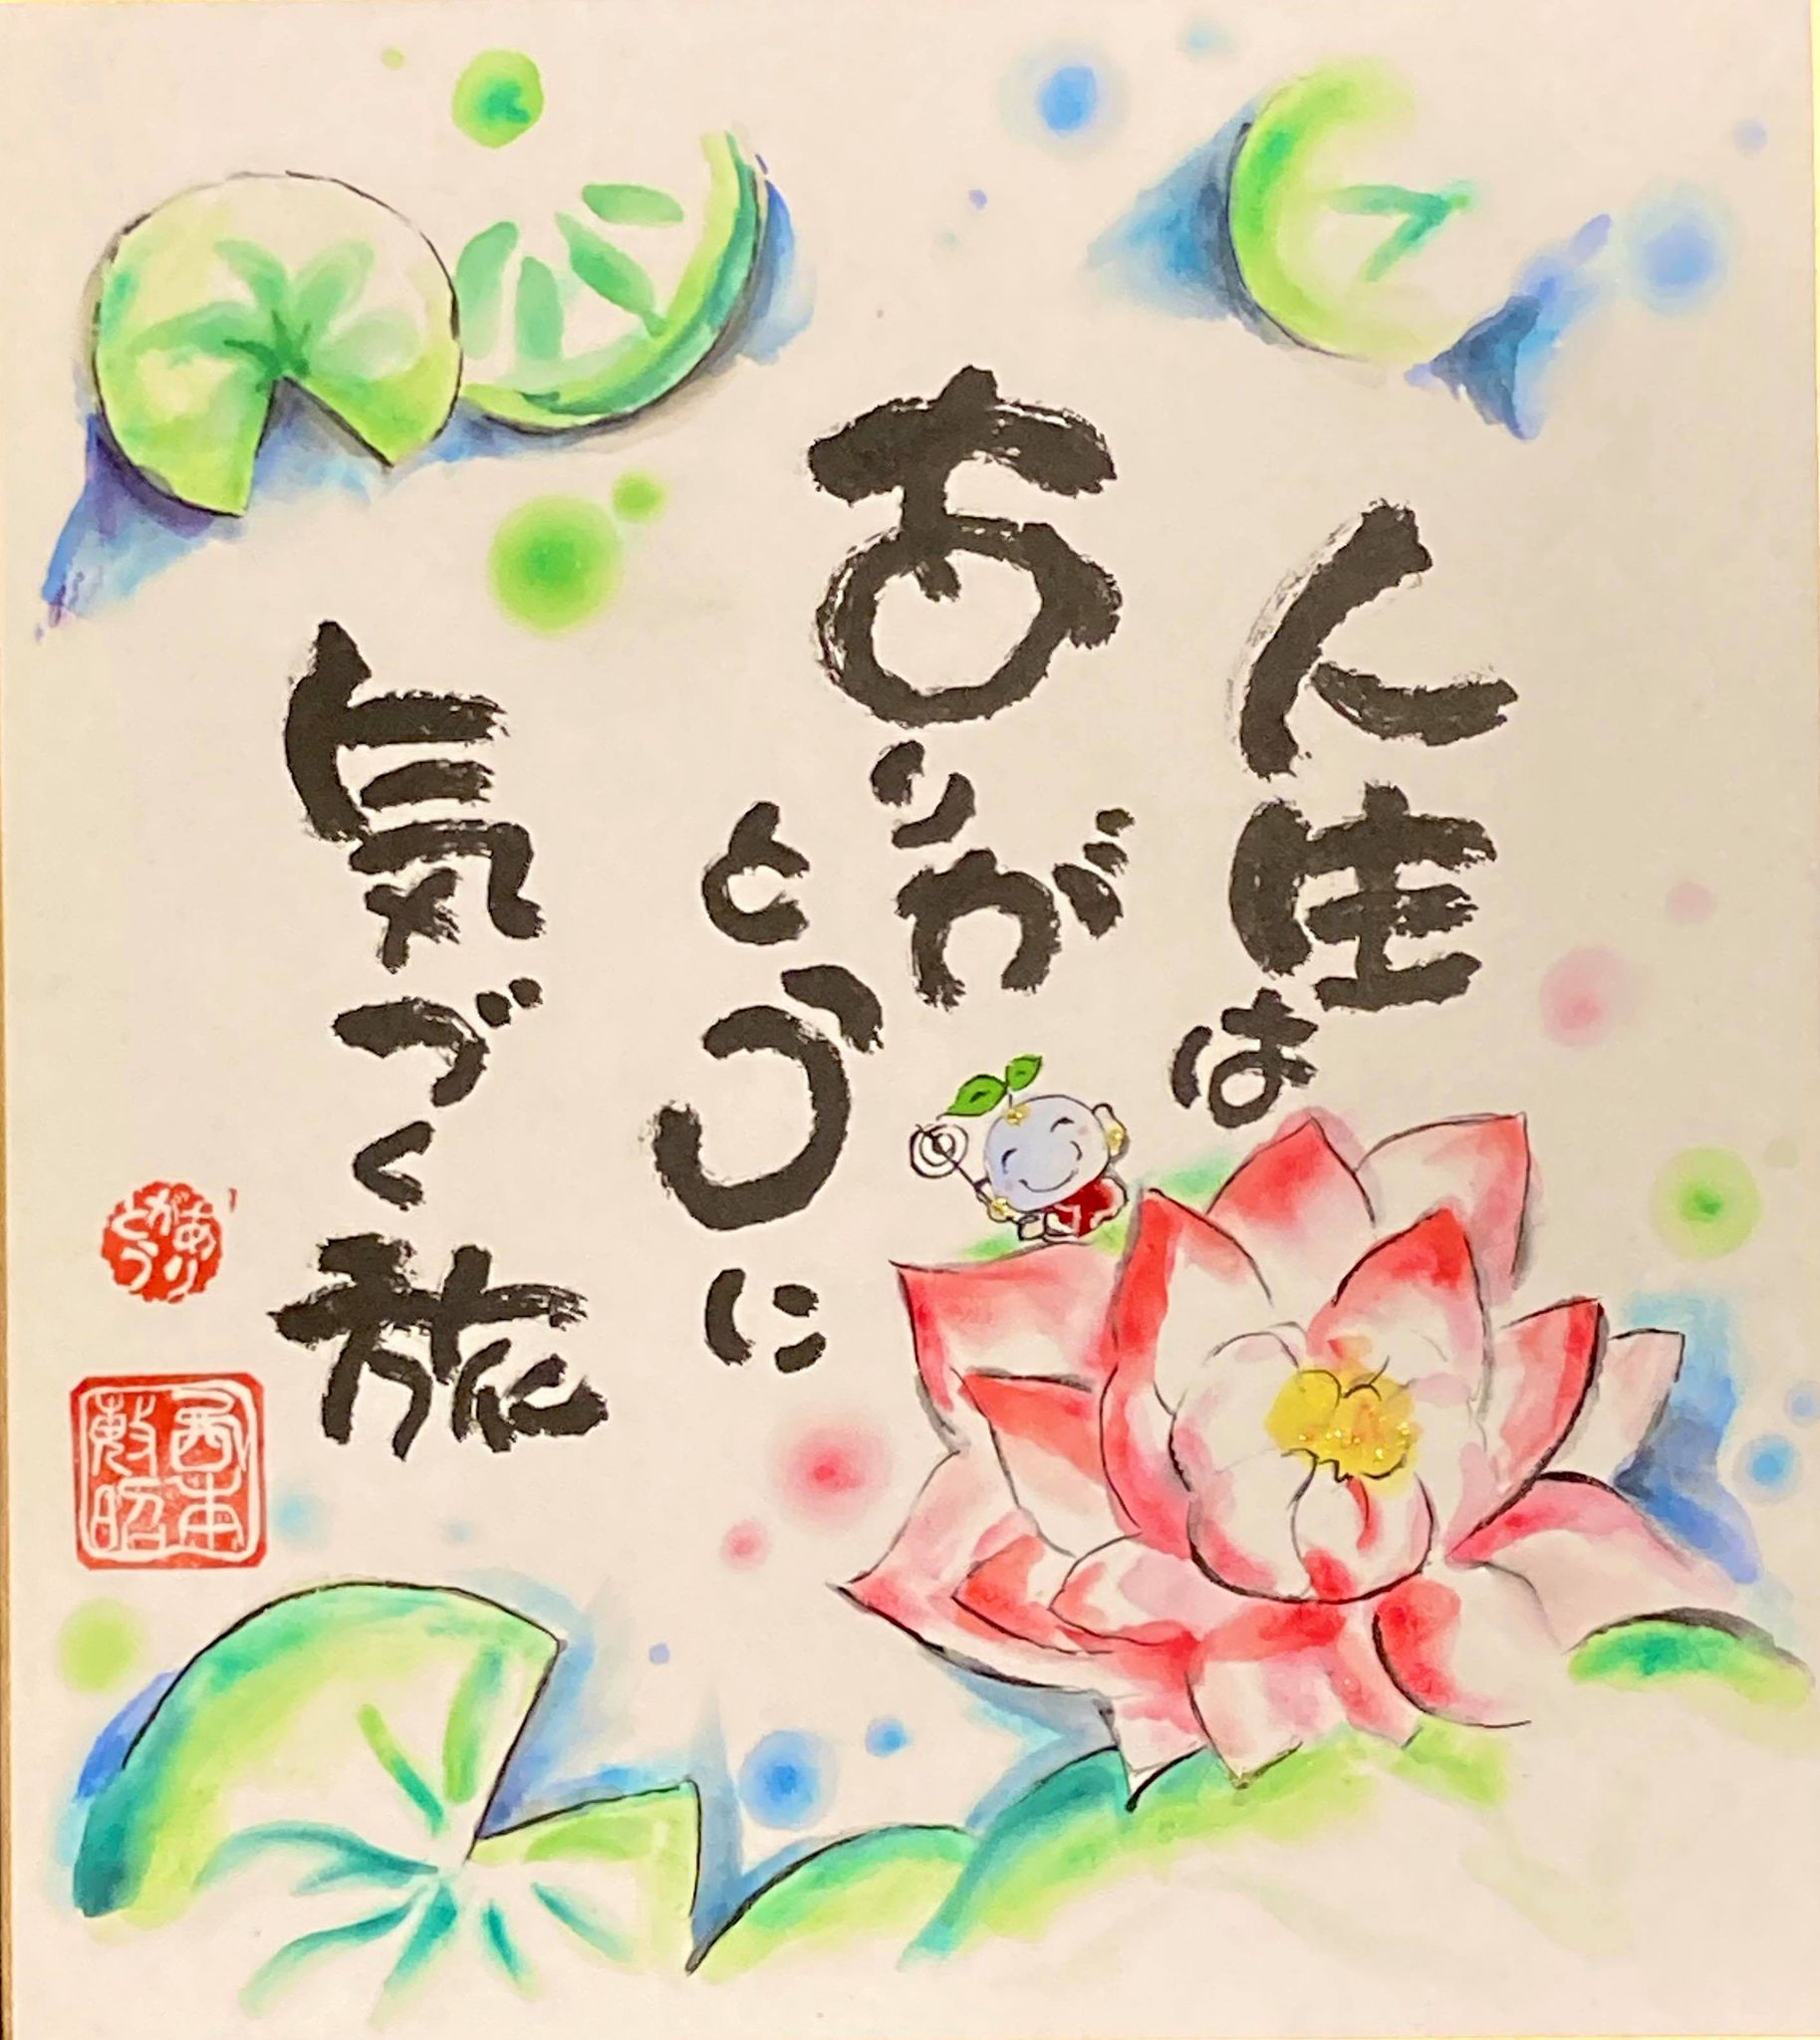 人生は
ありが
とうに
気づく旅
ありがとう
西本敏昭